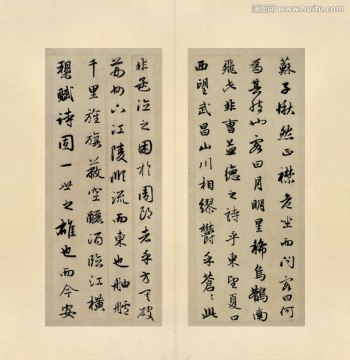 蘇子愀然正襟危坐而問客曰何
為其然也客曰月明星稀烏鵲南
飛此非曹孟德之詩乎東望夏口
西望武昌山川相繆鬱乎蒼〻此
非孟德之困於周郎者乎方其破
荊州下江陵順流而東也舳艫
千里旌旗蔽空釃酒臨江橫
槊賦詩固一世之雄也而今安
www.huitu.com